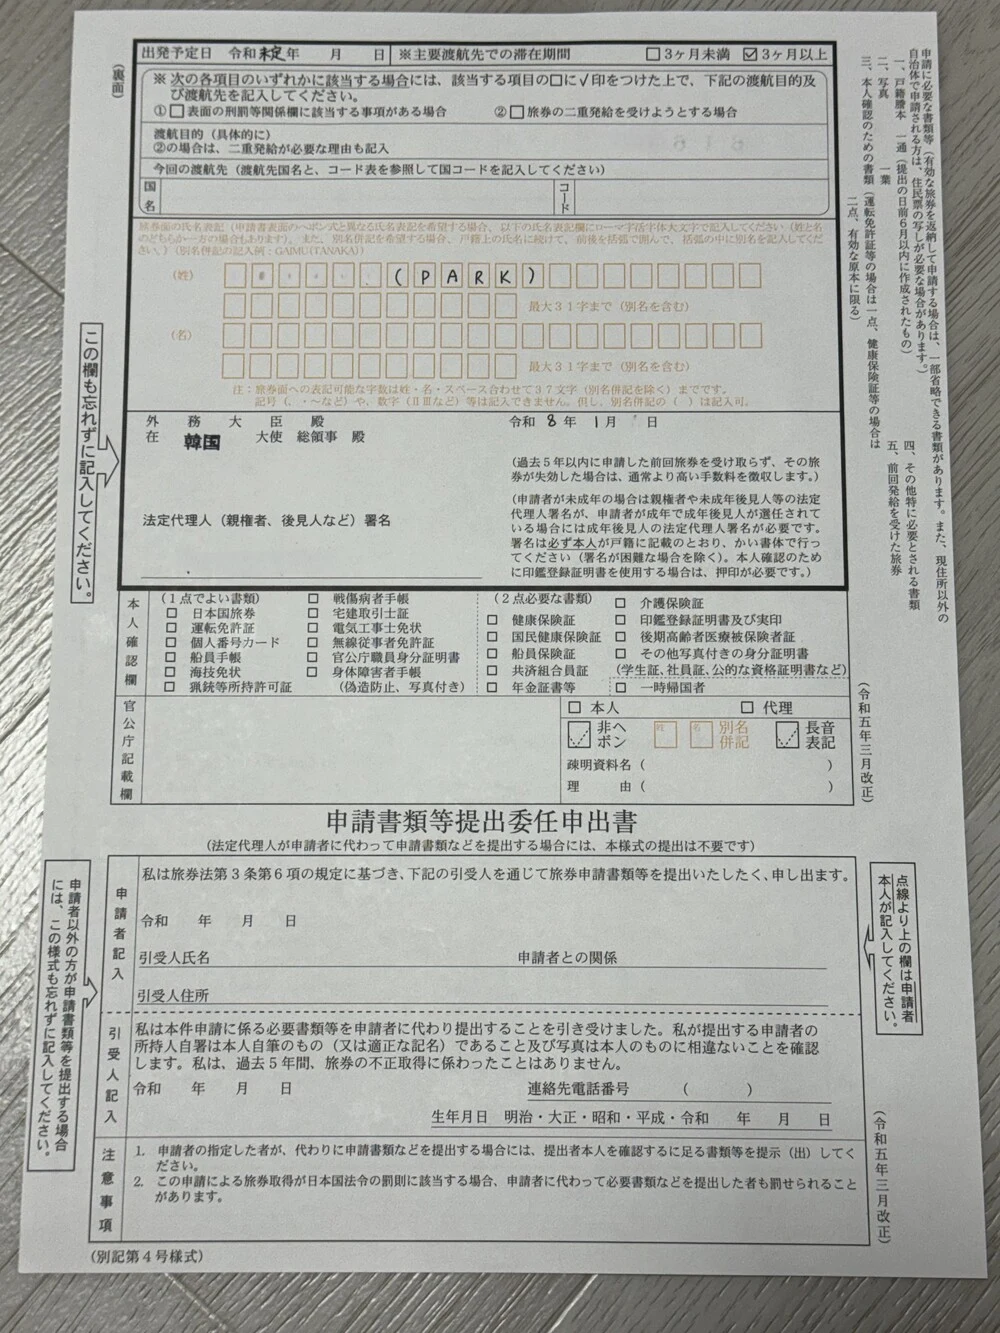 (裏面)
出発予定日 令和未定年 月 日 ※主要渡航先での滞在期間 □3ヶ月未満 ☑3ヶ月以上
※ 次の各項目のいずれかに該当する場合には、該当する項目の□に√印をつけた上で、下記の渡航目的及
び渡航先を記入してください。
①□表面の刑罰等関係欄に該当する事項がある場合 ②□旅券の二重発給を受けようとする場合
渡航目的(具体的に)
②の場合は、二重発給が必要な理由も記入
今回の渡航先(渡航先国名と、コード表を参照して国コードを記入してください)
国名 コード
旅券面の氏名表記(申請書表面のヘボン式と異なる氏名表記を希望する場合、以下の氏名表記欄にローマ字活字体大文字で記入してください(姓と名
のどちらか一方の場合もあります)。また、別名併記を希望する場合、戸籍上の氏名に続けて、前後を括弧で囲んで、括弧の中に別名を記入してくだ
さい。)(別名併記の記入例:GAIMU(TANAKA))
(姓) (PARK)
最大31字まで(別名を含む)
(名)
最大31字まで(別名を含む)
注:旅券面への表記可能な字数は姓・名・スペース合わせて37文字(別名併記を除く)までです。
記号(、・~など)や、数字(ⅡⅢなど)等は記入できません。但し、別名併記の( )は記入可。
外務大臣 殿 令和 8 年 1 月 日
在 韓国 大使 総領事 殿
(過去5年以内に申請した前回旅券を受け取らず、その旅
券が失効した場合は、通常より高い手数料を徴収します。)
(申請者が未成年の場合は親権者や未成年後見人等の法定
代理人署名が、申請者が成年で成年後見人が選任されて
いる場合には成年後見人の法定代理人署名が必要です。
署名は必ず本人が戸籍に記載のとおり、かい書体で行っ
てください(署名が困難な場合を除く)。本人確認のため
に印鑑登録証明書を使用する場合は、押印が必要です。)
法定代理人(親権者、後見人など)署名
この欄も忘れずに記入してください。
申請に必要な書類等(有効な旅券を返納して申請する場合は、一部省略できる書類があります。また、現住所以外の
自治体で申請される方は、住民票の写しが必要な場合があります。)
一、戸籍謄本 一通(提出の日前6月以内に作成されたもの)
二、写真 一葉
三、本人確認のための書類(運転免許証等の場合は一点、健康保険証等の場合は
二点、有効な原本に限る)
四、その他特に必要とされる書類
五、前回発給を受けた旅券
本人確認欄
(1点でよい書類)
□ 日本国旅券
□ 運転免許証
□ 個人番号カード
□ 船員手帳
□ 海技免状
□ 猟銃等所持許可証
□ 戦傷病者手帳
□ 宅建取引士証
□ 電気工事士免状
□ 無線従事者免許証
□ 官公庁職員身分証明書
□ 身体障害者手帳
(偽造防止、写真付き)
(2点必要な書類)
□ 健康保険証
□ 国民健康保険証
□ 船員保険証
□ 共済組合員証
□ 年金証書等
□ 介護保険証
□ 印鑑登録証明書及び実印
□ 後期高齢者医療被保険者証
□ その他写真付きの身分証明書
(学生証、社員証、公的な資格証明書など)
□ 一時帰国者
官公庁記載欄
□ 本人 □ 代理
非ヘボン 姓 名 別名併記 長音表記
疎明資料名( )
理由( )
(令和五年三月改正)
申請書類等提出委任申出書
(法定代理人が申請者に代わって申請書類などを提出する場合には、本様式の提出は不要です)
申請者記入
私は旅券法第3条第6項の規定に基づき、下記の引受人を通じて旅券申請書類等を提出いたしたく、申し出ます。
令和 年 月 日
引受人氏名 申請者との関係
引受人住所
引受人記入
私は本件申請に係る必要書類等を申請者に代わり提出することを引き受けました。私が提出する申請者の
所持人自署は本人自筆のもの(又は適正な記名)であること及び写真は本人のものに相違ないことを確認
します。私は、過去5年間、旅券の不正取得に係わったことはありません。
令和 年 月 日 連絡先電話番号 ( )
生年月日 明治・大正・昭和・平成・令和 年 月 日
注意事項
1. 申請者の指定した者が、代わりに申請書類などを提出する場合には、提出者本人を確認するに足る書類等を提示(出)してく
ださい。
2. この申請による旅券取得が日本国法令の罰則に該当する場合、申請者に代わって必要書類などを提出した者も罰せられること
があります。
申請者以外の方が申請書類等を提出する場合
には、この様式も忘れずに記入してください。
点線より上の欄は申請者
本人が記入してください。
(令和五年三月改正)
(別記第4号様式)